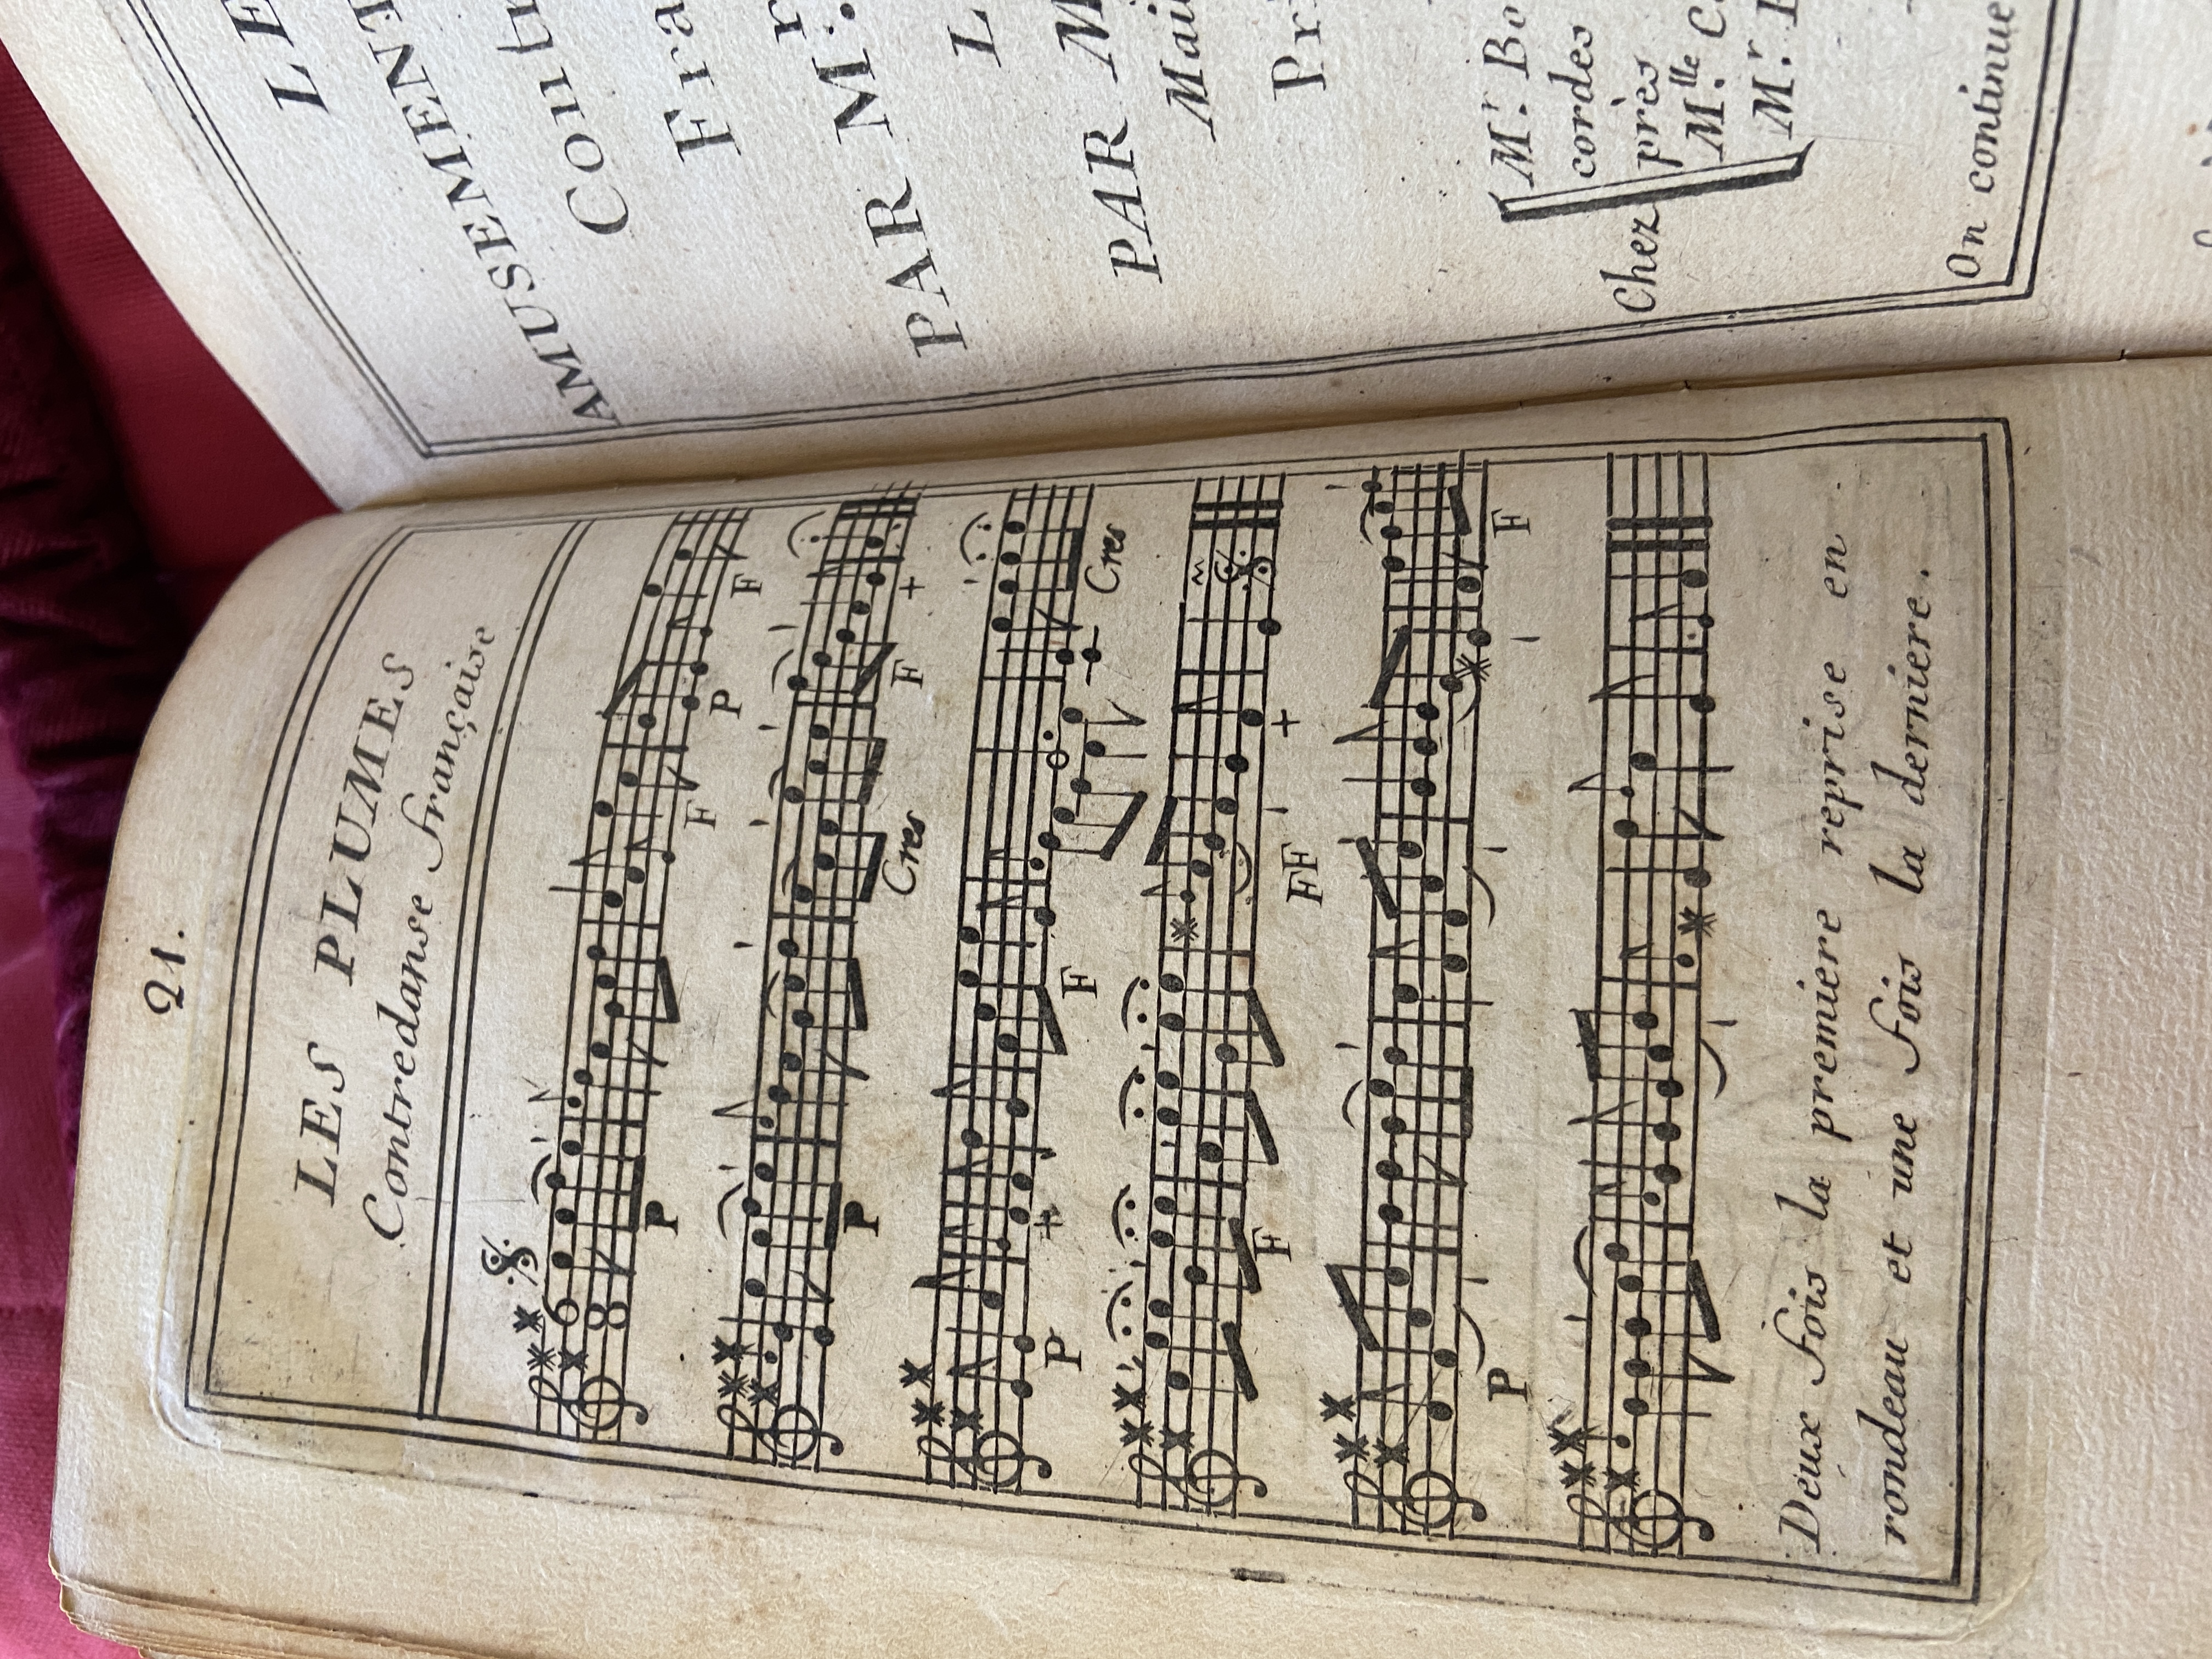 21.
LES PLUMES
Contredanse française
P F P F
P Cres F +
P + F Cres
F FF +
P F
Deux fois la premiere reprise en
rondeau et une fois la derniere.
LE
AMUSEMENT
PAR M.
PAR M
Chez
Mr. Bo
cordes
près
Mlle C
Mr.
On continue